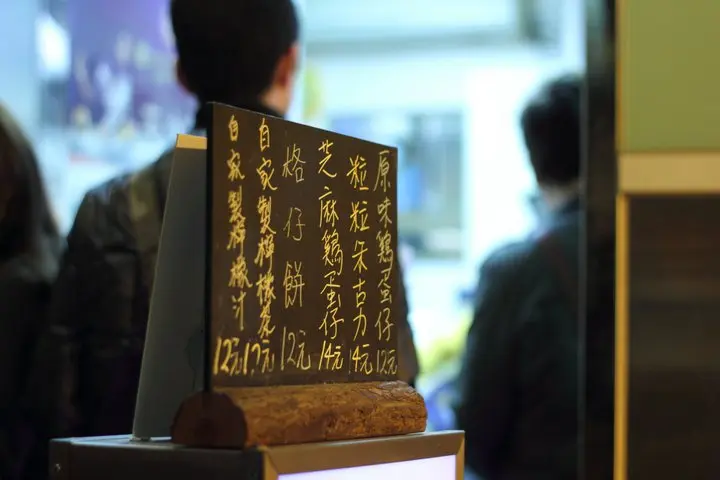 原味鷄蛋仔12元
粒粒朱古力14元
芝麻鷄蛋仔14元
格仔餅12元
自家製檸檬茶17元
自家製檸檬汁12元